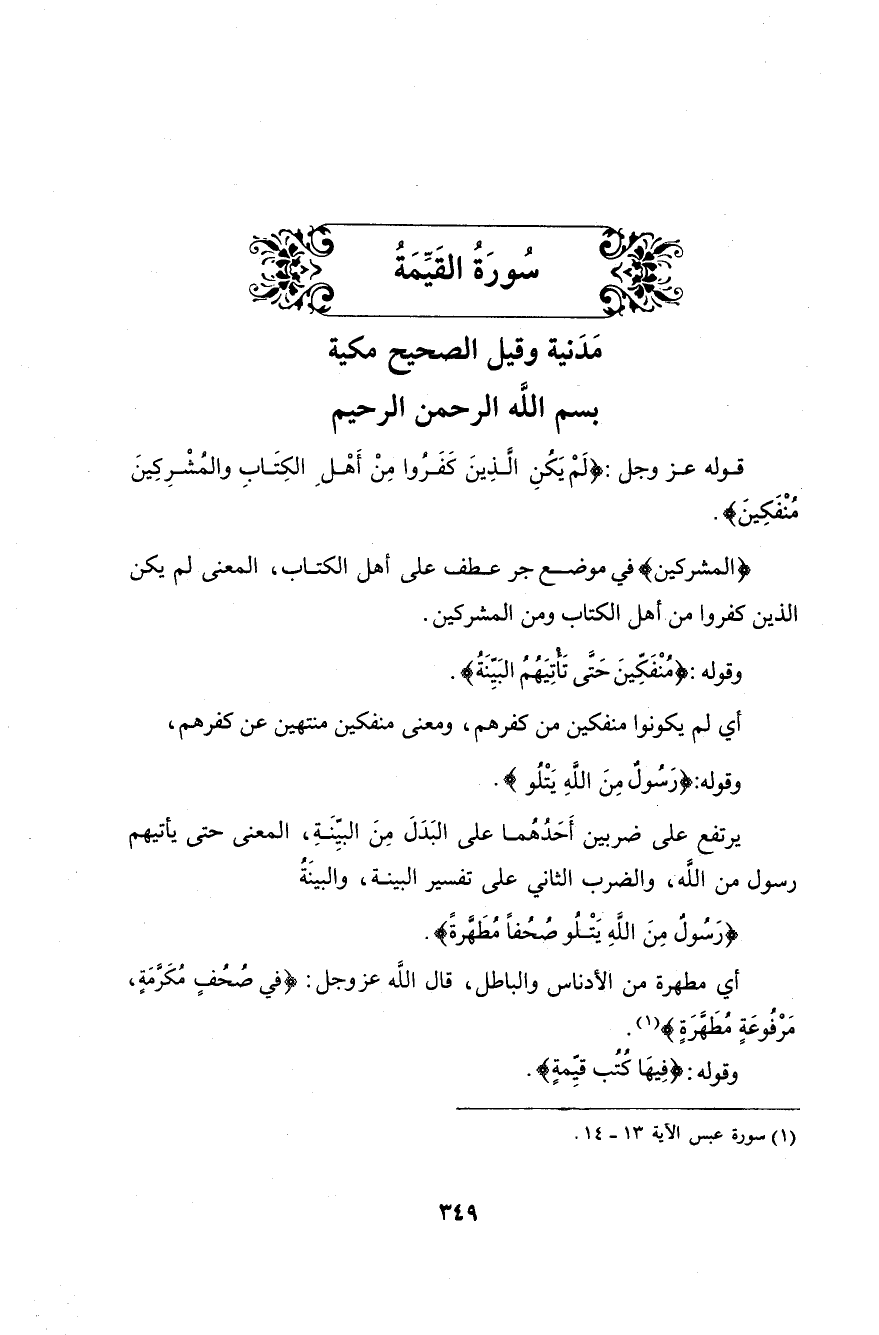 سُورَةُ القَيِّمَةُ
مَدَنية وقيل الصحيح مكية
بسم اللَّه الرحمن الرحيم
قوله عز وجل: ﴿لَمْ يَكُنِ الَّذِينَ كَفَرُوا مِنْ أَهْلِ الكِتَابِ والمُشْرِكِينَ
مُنْفَكِينَ﴾.
﴿المشركين﴾ في موضع جر عطف على أهل الكتاب، المعنى لم يكن
الذين كفروا من أهل الكتاب ومن المشركين.
وقوله: ﴿مُنْفَكِّينَ حَتَّى تَأْتِيَهُمُ البَيِّنَةُ﴾.
أي لم يكونوا منفكين من كفرهم، ومعنى منفكين منتهين عن كفرهم،
وقوله: ﴿رَسُولٌ مِنَ اللَّهِ يَتْلُو ﴾.
يرتفع على ضربين أَحَدُهُما على البَدَلَ مِنَ البيِّنَةِ، المعنى حتى يأتيهم
رسول من اللَّه، والضرب الثاني على تفسير البينة، والبينَةُ
﴿رَسُولٌ مِنَ اللَّهِ يَتْلُو صُحُفاً مُطَهَّرةً﴾.
أي مطهرة من الأدناس والباطل، قال اللَّه عز وجل: ﴿في صُحُفٍ مُكَرَّمَةٍ،
مَرْفُوعَةٍ مُطَهَّرَةٍ ﴾(١).
وقوله: ﴿فِيهَا كُتُب قيِّمةٍ﴾.
(١) سورة عبس الآية ١٣ ـ ١٤.
٣٤٩